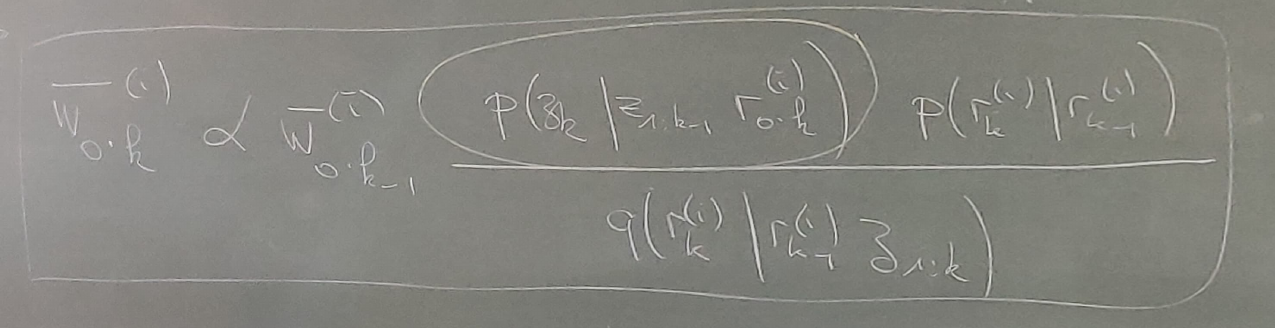 w̄₀:ₖ⁽ⁱ⁾ ∝ w̄₀:ₖ₋₁⁽ⁱ⁾ p(zₖ | z₁:ₖ₋₁ r₀:ₖ⁽ⁱ⁾) p(rₖ⁽ⁱ⁾ | rₖ₋₁⁽ⁱ⁾)
q(rₖ⁽ⁱ⁾ | rₖ₋₁⁽ⁱ⁾ z₁:ₖ)